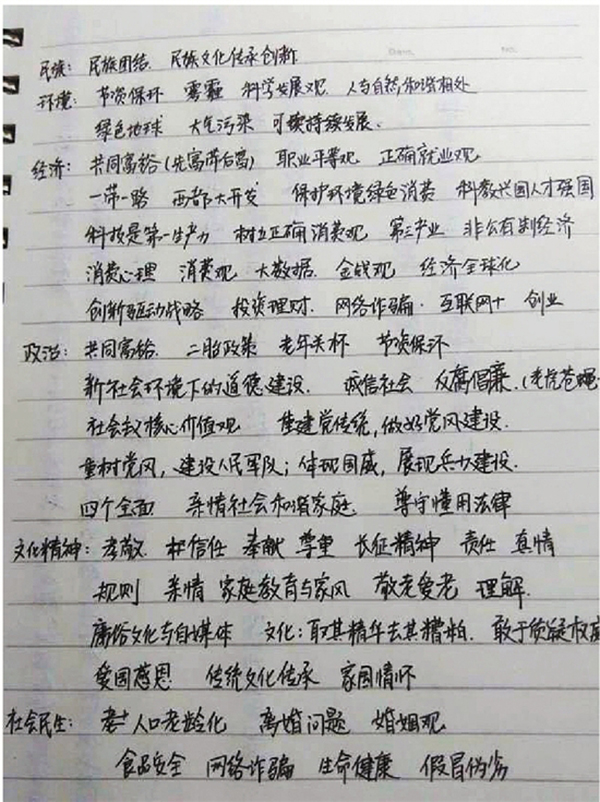 民族: 民族团结. 民族文化传承创新
环境: 节资保环 雾霾 科学发展观. 人与自然和谐相处
绿色地球 大气污染 可续持续发展.
经济: 共同富裕(先富带后富) 职业平等观 正确就业观
一带一路 西部大开发 保护环境绿色消费 科教兴国人才强国
科技是第一生产力 树立正确消费观 第三产业 非公有制经济
消费心理 消费观 大数据. 金钱观 经济全球化
创新驱动战略 投资理财. 网络诈骗. 互联网+ 创业
政治: 共同富裕. 二胎政策 老年关怀 节资保环
新社会环境下的道德建设. 诚信社会 反腐倡廉.(老虎苍蝇
社会主义核心价值观 重建党传统,做好党风建设.
重树党风,建设人民军队;体现国威,展现兵力建设.
四个全面 亲情社会和谐家庭. 尊守懂用法律
文化精神: 孝敬. 信任 奉献 尊重 长征精神 责任 真情
规则 亲情 家庭教育与家风 敬老爱老 理解.
庸俗文化与自媒体 文化:取其精华去其糟粕. 敢于质疑权威
爱国感恩 传统文化传承 家国情怀
社会民生: 人口老龄化 离婚问题 婚姻观
食品安全 网络诈骗 生命健康 假冒伪劣